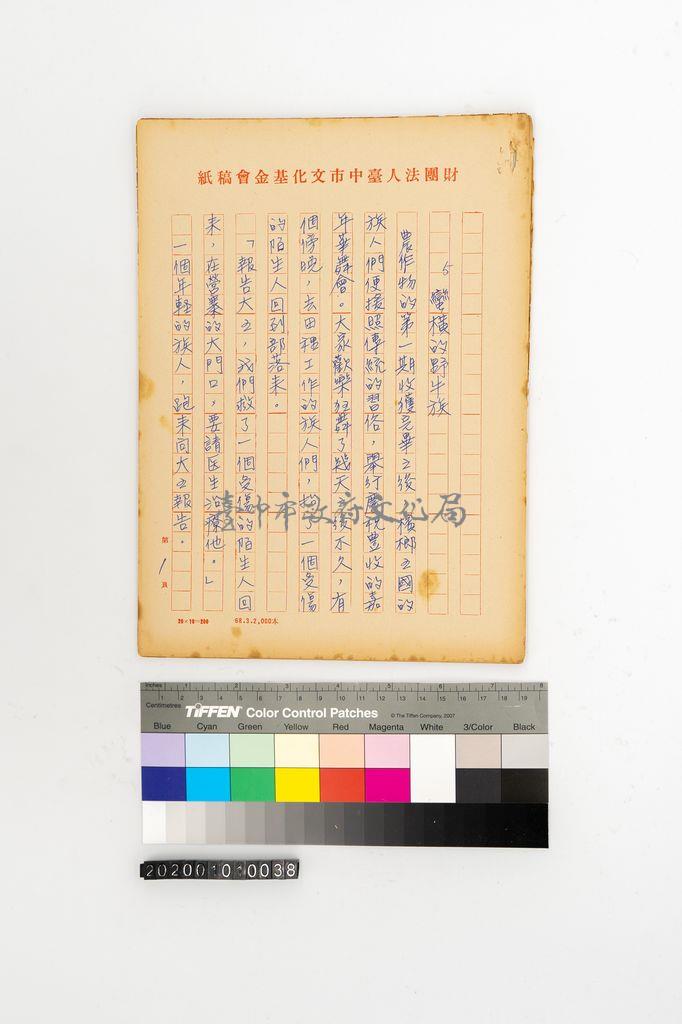 紙稿會金基化文市中臺人法團財
5 蠻橫的野牛族
農作物的第一期收穫完畢之後，檳榔之國的
族人們便援照傳統的習俗，舉行慶祝豐收的嘉
年華舞會。大家歡樂狂舞了幾天後不久，有
個傍晚，去田裡工作的族人們，擡了一個受傷
的陌生人回到部落來。
「報告大王，我們救了一個受傷的陌生人回
來，在營寨的大門口，要請医生治療他。」
一個年輕的族人，跑來向大王報告。
第 1 頁
20×10=200
68.3.2,000本
臺中市政府文化局
Inches 1 2 3 4 5 6 7 8
Centimetres 1 2 3 4 5 6 7 8 9 10 11 12 13 14 15 16 17 18 19
TIFFEN Color Control Patches © The Tiffen Company, 2007
Blue Cyan Green Yellow Red Magenta White 3/Color Black
202001010038